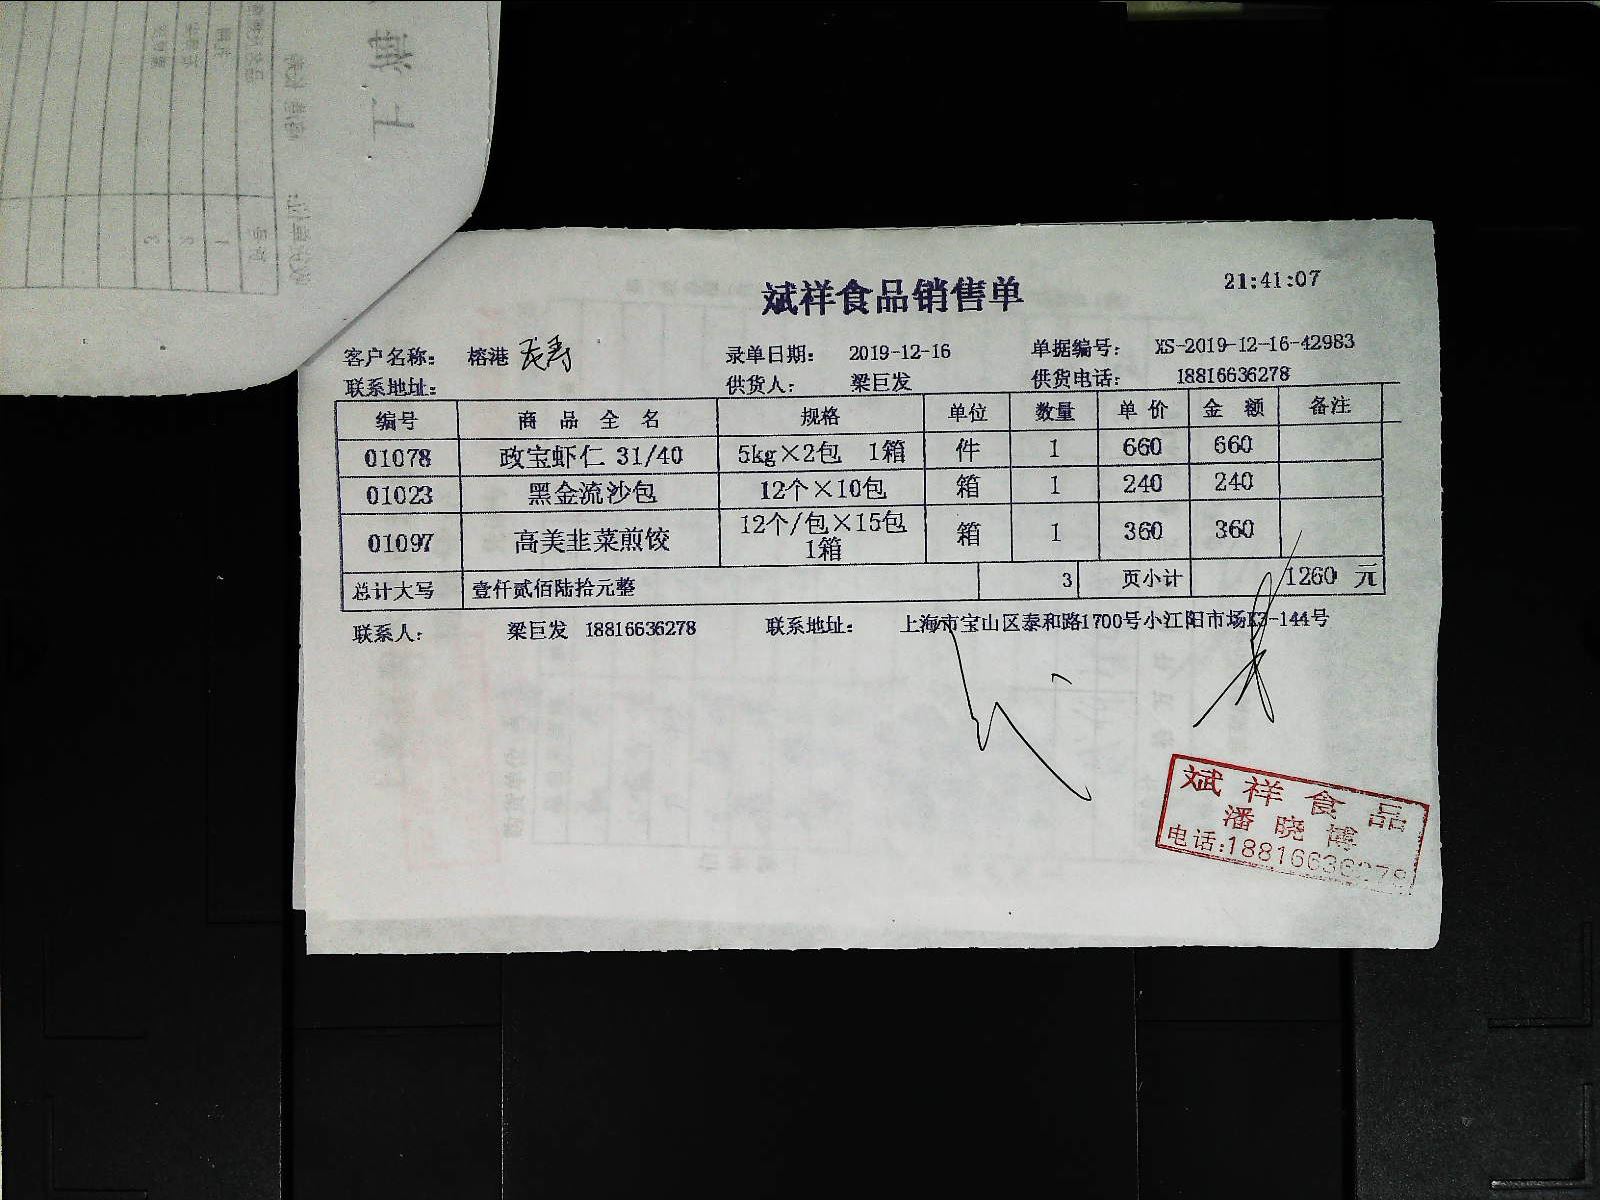 斌祥食品销售单
21:41:07
客户名称： 榕港 录单日期： 2019-12-16 单据编号： XS-2019-12-16-42983
联系地址： 供货人： 梁巨发 供货电话： 18816636278
编号 商品全名 规格 单位 数量 单价 金额 备注
01078 政宝虾仁 31/40 5kg×2包 1箱 件 1 660 660
01023 黑金流沙包 12个×10包 箱 1 240 240
01097 高美韭菜煎饺 12个/包×15包 1箱 箱 1 360 360
总计大写 壹仟贰佰陆拾元整 3 页小计 1260 元
联系人： 梁巨发 18816636278 联系地址： 上海市宝山区泰和路1700号小江阳市场K3-144号
斌祥食品
潘晓博
电话:18816636278